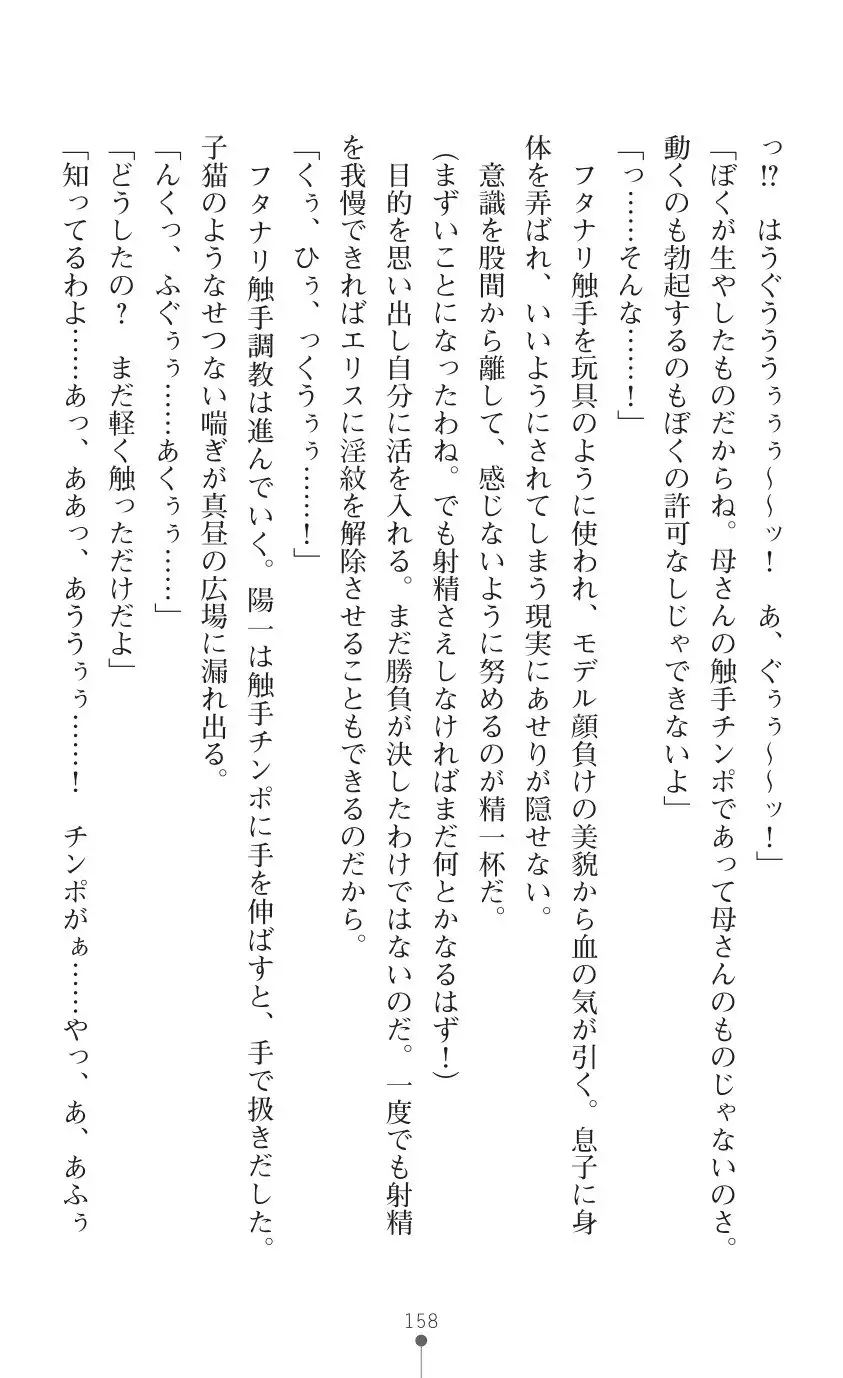 っ!?　はうぐううぅぅぅ～～ッ！　あ、ぐぅぅ～～ッ！」
「ぼくが生やしたものだからね。母さんの触手チンポであって母さんのものじゃないのさ。
動くのも勃起するのもぼくの許可なしじゃできないよ」
「っ……そんな……！」
　フタナリ触手を玩具のように使われ、モデル顔負けの美貌から血の気が引く。息子に身
体を弄ばれ、いいようにされてしまう現実にあせりが隠せない。
　意識を股間から離して、感じないように努めるのが精一杯だ。
（まずいことになったわね。でも射精さえしなければまだ何とかなるはず！）
　目的を思い出し自分に活を入れる。まだ勝負が決したわけではないのだ。一度でも射精
を我慢できればエリスに淫紋を解除させることもできるのだから。
「くぅ、ひぅ、っくうぅぅ……！」
　フタナリ触手調教は進んでいく。陽一は触手チンポに手を伸ばすと、手で扱きだした。
子猫のようなせつない喘ぎが真昼の広場に漏れ出る。
「んくっ、ふぐぅぅ……あくぅぅ……」
「どうしたの？　まだ軽く触っただけだよ」
「知ってるわよ……あっ、ああっ、あううぅぅ……！　チンポがぁ……やっ、あ、あふぅ
158